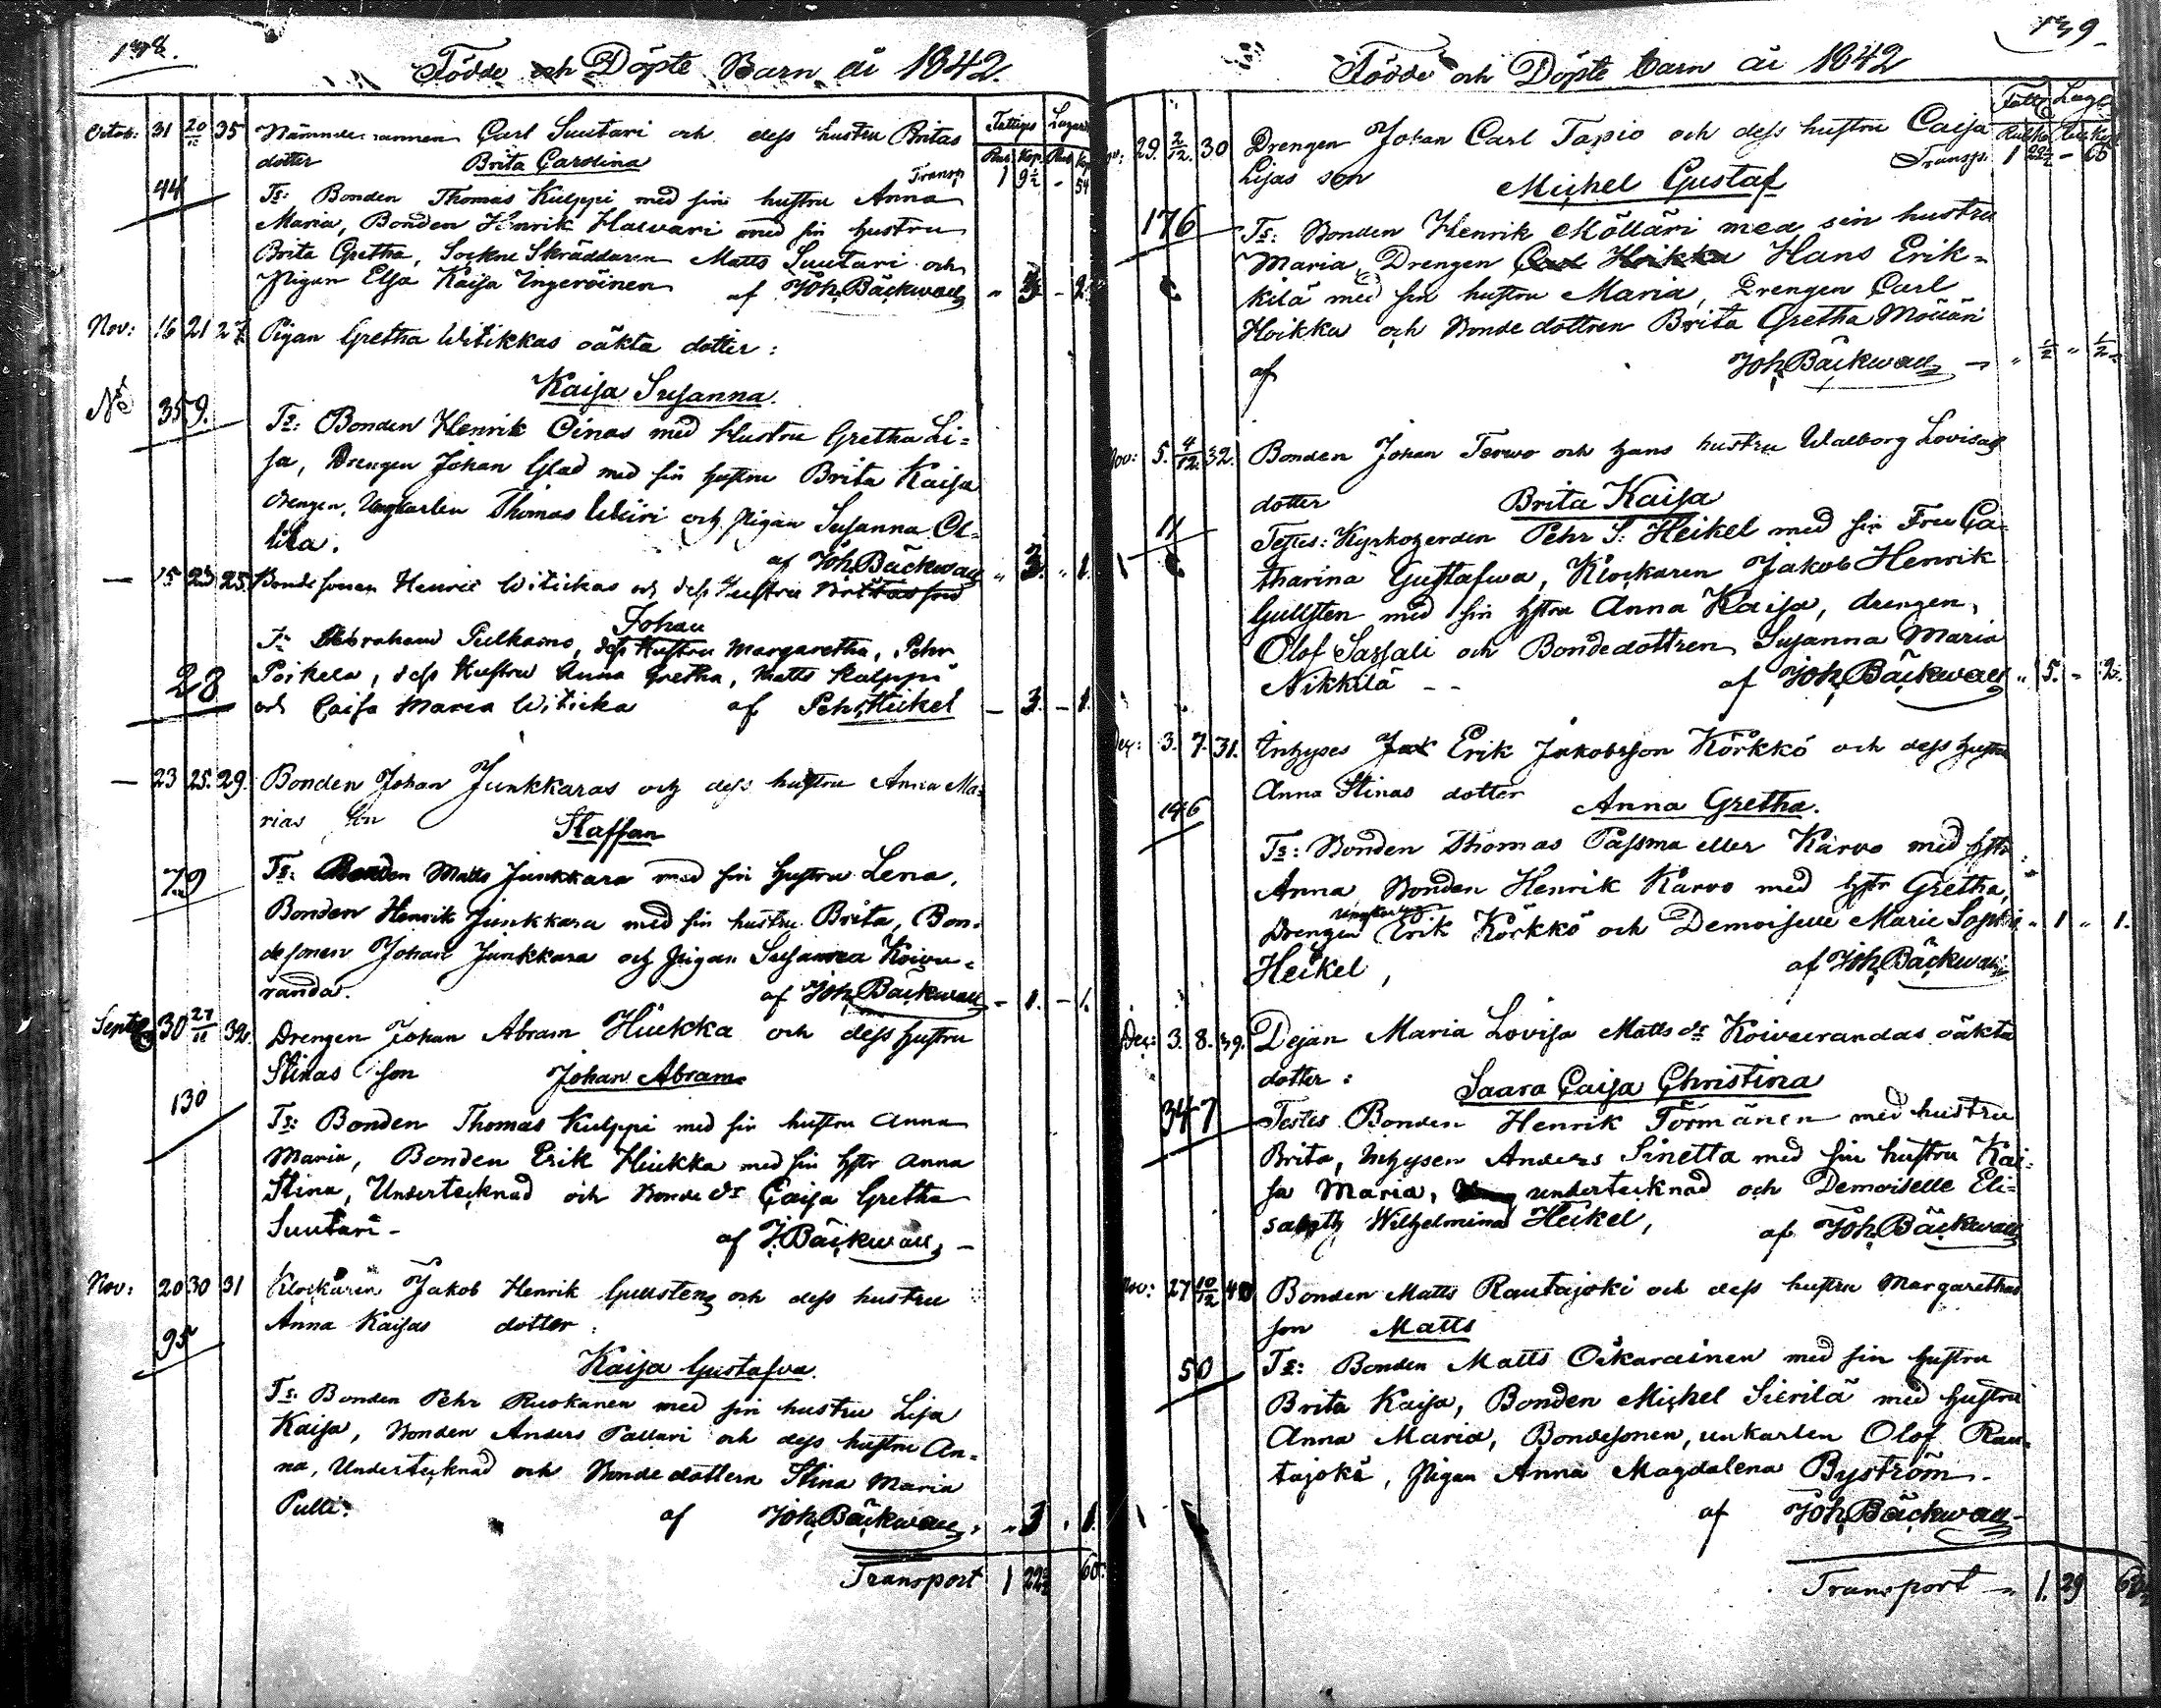 138.
Födde och Döpte Barn år 1842.
Fattiges Lagar
Rub Kop Rub Kop
Octob: 31 20/11 35 Nämndemannen Carl Suutari och dess hustru Britas
dotter Brita Carolina
Transp 1 9½ - 54
44
Ts: Bonden Thomas Kulppi med sin hustru Anna
Maria, Bonden Henrik Halvari med sin hustru
Brita Gretha, Sockne Skräddaren Matts Suutari och
Pigan Elsa Kaisa Ingeröinen af Joh. Bäckwall " 3 - 2.
Nov: 16 21 27 Pigan Gretha Witikkas oäkta dotter:
Kaisa Susanna.
No 359.
Ts: Bonden Henrik Oinas med Hustru Gretha Li=
sa, Drengen Johan Glad med sin hustru Brita Kaisa
drengen, Ungkarlen Thomas och Pigan Susanna Ol=
lila.
af Joh. Bäckwall " 3. " 1.
— 15 23 25. Bondesonen Henric Witickas och dess Hustru Brittas son
Johan
Ts Abraham Pulkamo, dess Hustru Margaretha, Pehr
Poikela, dess Hustru Anna Gretha, Matts Kulppi
28
och Caisa Maria Witicka af Pehr Heickel — 3. — 1.
— 23 25. 29. Bonden Johan Junkkaras och dess hustru Anna Ma=
rias Son Staffan
79
Ts: Bonden Matts Junkkara med sin hustru Lena,
Bonden Henrik Junkkara med sin hustru Brita, Bon=
desonen Johan Junkkara och Pigan Susanna Koivu=
randa.
af Joh. Bäckwall — 1. — 1.
Septb 30 27/11 32. Drengen Johan Abram Hiukka och dess hustru
Stinas son Johan Abram
130
Ts: Bonden Thomas Kulppi med sin hustru Anna
Maria, Bonden Erik Hiukka med sin hstr Anna
Stina, Undertecknad och Bonde dr Caisa Gretha
Suutari -
af J. Bäckwall, —
Nov: 20 30 31 Klockaren Jakob Henrik Gullsten och dess hustru
Anna Kaisas dotter:
95
Kaisa Gustafva.
Ts: Bonden Pehr Ruokanen med sin hustru Lisa
Kaisa, Bonden Anders Pallari och dess hustru An=
na, Undertecknad och Bonde dottern Stina Maria
Pulli.
af Joh. Bäckwall, " 3 " 1.
Transport 1 22½ 60.
139
Födde och Döpte barn år 1842
Fatt. Lag.
Rub Ko Rub Kop
29. 2/12. 30 Drengen Johan Carl Tapio och dess hustru Caisa
Transp: 1 22½ - 60
Lisas son Michel Gustaf
176
Ts: Bonden Henrik Möllari med sin hustru
Maria, Drengen Carl Hoikka Hans Erik=
kilä med sin hustru Maria, Drengen Carl
Hoikka och Bonde dottren Brita Gretha Möllari
af Joh. Bäckwall — " ½ " ½
Nov: 5. 4/12. 32. Bonden Johan Terwo och hans hustru Walborg Lovisas
dotter Brita Kaisa
11
Testes: Kyrkoherden Pehr J. Heikel med sin Fru Ca=
tharina Gustafwa, Klockaren Jakob Henrik
Gullsten med sin hstru Anna Kaisa, drengen,
Olof Sassali och Bondedottren Susanna Maria
Nikkilä - -
af Joh. Bäckwall " 5. - 2.
Dec: 3. 7. 31. Inhyses Jak Erik Jakobsson Körkkö och dess hustru
Anna Stinas dotter Anna Gretha.
146
Ts: Bonden Thomas Passma eller Karvo med hstr
Anna, Bonden Henrik Karvo med hstr Gretha,
ungkarlen
Drengen Erik Körkkö och Demoiselle Marie Sophi " 1 " 1.
Heikel,
af Joh. Bäckwall
Dec: 3. 8. 39. Pejan Maria Lovisa Matts dr Koivurandas oäkta
dotter: Saara Caisa Christina
347
Testes Bonden Henrik Törmänen med hustru
Brita, Inhysen Anders Sinetta med sin hustru Kai=
sa Maria, undertecknad och Demoiselle Eli=
sabeth Wilhelmina Heikel,
af Joh. Bäckwall
Nov: 27 10/12 40 Bonden Matts Rautajoki och dess hustru Margarethas
son Matts
50
Ts: Bonden Matts Oikarainen med sin hustru
Brita Kaisa, Bonden Michel Sierilä med hustru
Anna Maria, Bondesonen, unkarlen Olof Rau=
tajoki, Pigan Anna Magdalena Byström.
af Joh. Bäckwall
Transport — 1. 29